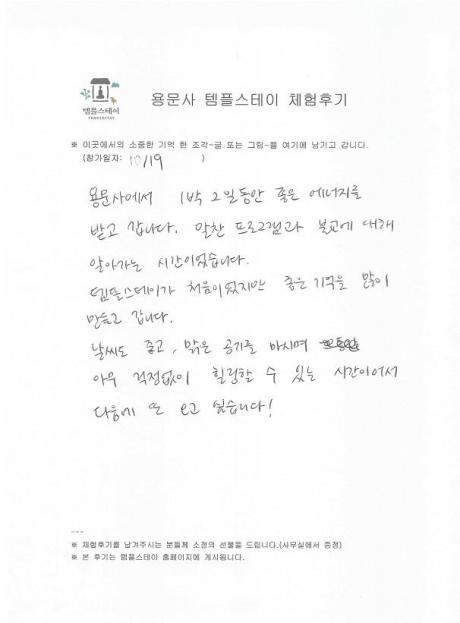 템플스테이
TEMPLESTAY
용문사 템플스테이 체험후기
※ 이곳에서의 소중한 기억 한 조각-글 또는 그림-을 여기에 남기고 갑니다.
(참가일자: 10/19 )
용문사에서 1박 2일동안 좋은 에너지를
받고 갑니다. 알찬 프로그램과 불교에 대해
알아가는 시간이었습니다.
템플스테이가 처음이었지만 좋은 기억을 많이
만들고 갑니다.
날씨도 좋고, 맑은 공기를 마시며
아무 걱정없이 힐링할 수 있는 시간이어서
다음에 또 오고 싶습니다!
---
※ 체험후기를 남겨주시는 분들께 소정의 선물을 드립니다.(사무실에서 증정)
※ 본 후기는 템플스테이 홈페이지에 게시됩니다.